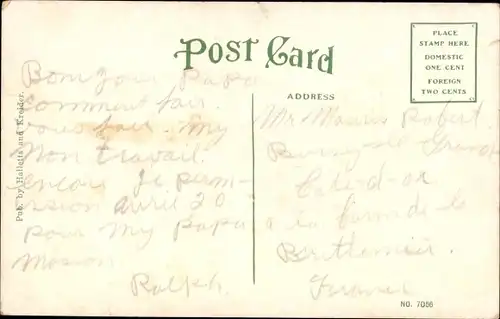 POST CARD
PLACE
STAMP HERE
DOMESTIC
ONE CENT
FOREIGN
TWO CENTS
ADDRESS
Pub. by Halletts and Kreider.
Bonjour Papa
comment fair
vous fair. My
Mon travail.
encore Je perm-
ission avril 20
pour My Papa
Maison
Ralph.
Mr Maurice Robert.
Cote-d-or
a la farm de la
France
NO. 7086